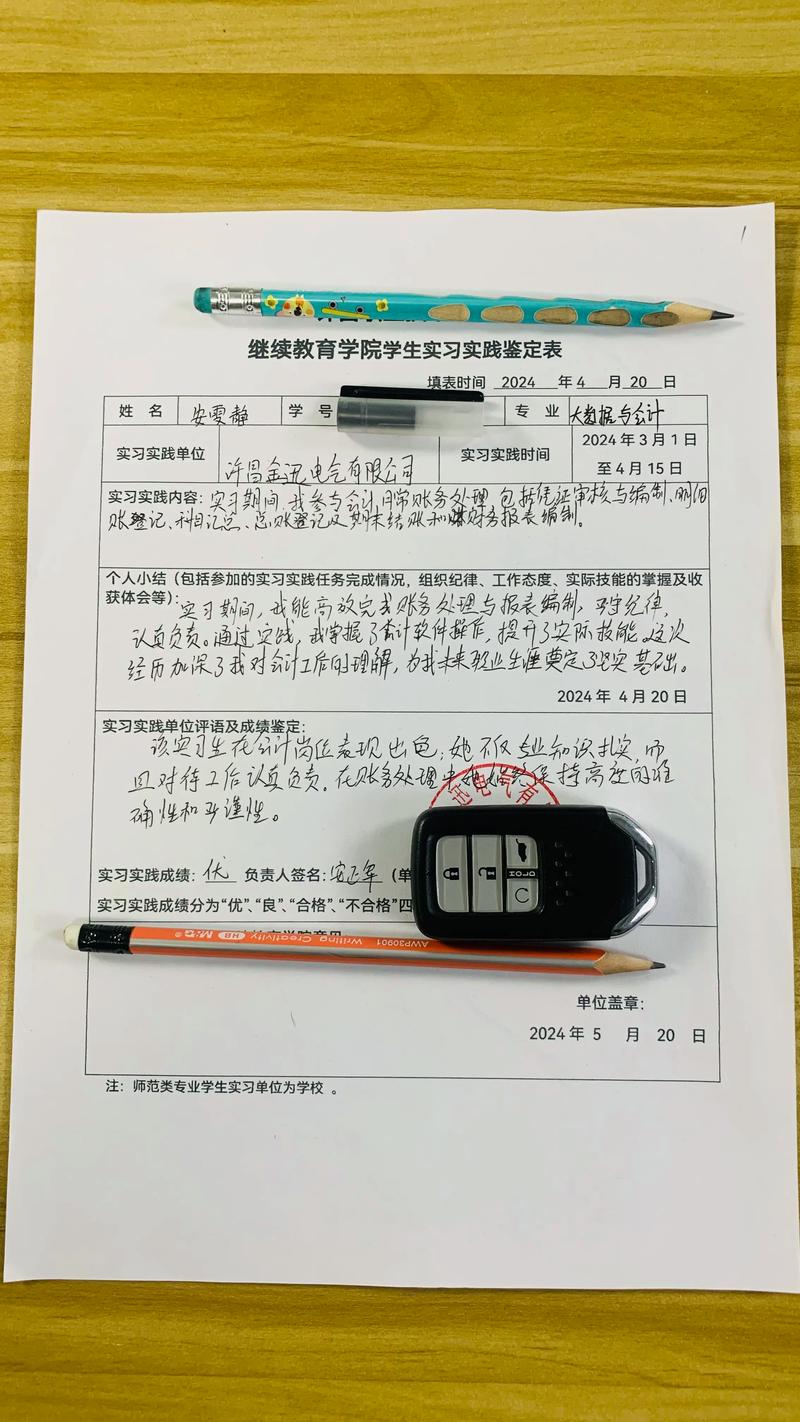 继续教育学院学生实习实践鉴定表
填表时间 2024 年 4 月 20 日
姓 名 安雯静 学 号 专 业 大数据与会计
实习实践单位 许昌金迅电气有限公司 实习实践时间 2024 年 3 月 1 日
至 4 月 15 日
实习实践内容: 实习期间,我参与会计日常账务处理,包括凭证审核与编制、明细
账登记、科目汇总、总账登记及期末结账和财务报表编制。
个人小结（包括参加的实习实践任务完成情况，组织纪律、工作态度、实际技能的掌握及收
获体会等）:
实习期间，我能高效完成账务处理与报表编制，遵守纪律，
认真负责。通过实践，我掌握了会计软件操作，提升了实际技能。这次
经历加深了我对会计工作的理解，为我未来职业生涯奠定了坚实基础。
2024 年 4 月 20 日
实习实践单位评语及成绩鉴定:
该实习生在会计岗位表现出色，她不仅专业知识扎实，而
且对待工作认真负责。在账务处理中她始终保持高度的准
确性和严谨性。
电气有
实习实践成绩: 优 负责人签名: 安正军 (单
实习实践成绩分为“优”、“良”、“合格”、“不合格”四
HOLD
M&G HB Writing Creativity AWP30901
单位盖章:
2024 年 5 月 20 日
注: 师范类专业学生实习单位为学校 。